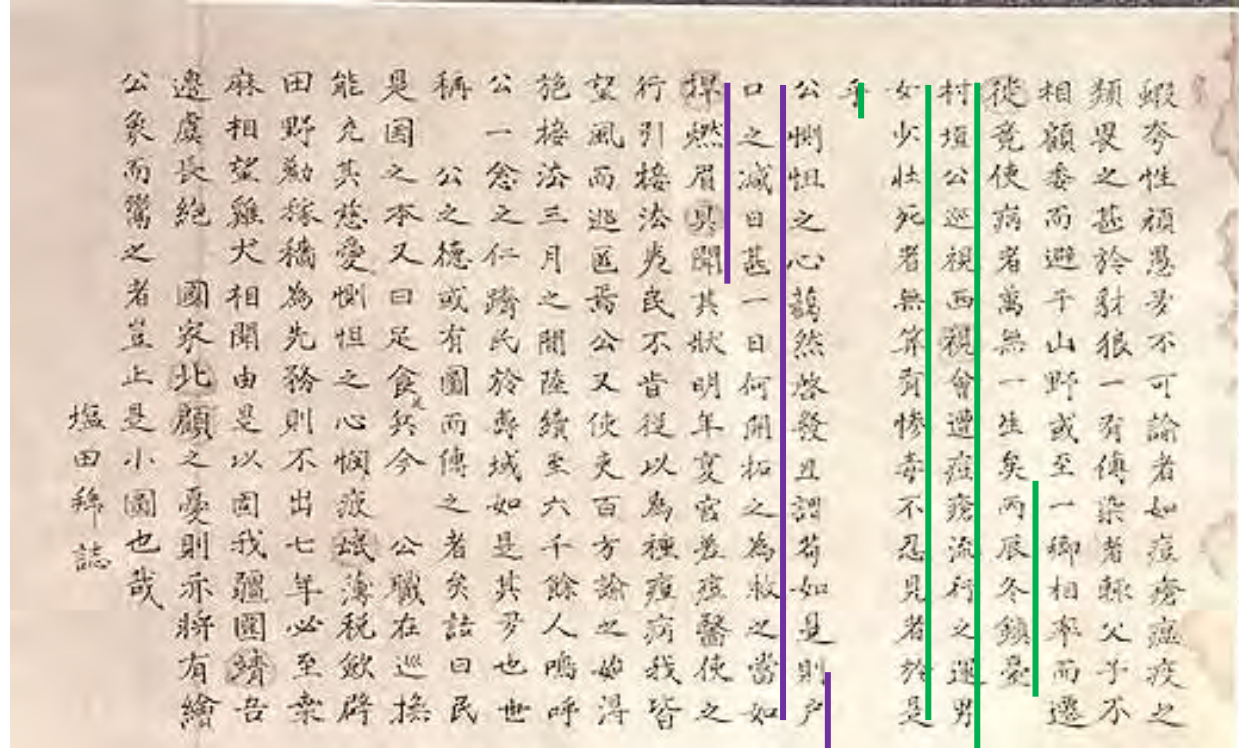 蝦夷性頑愚多不可諭者如痘瘡瘟疫之
類畏之甚於豺狼一有傳染者輙父子不
相顧委而避于山野或至一鄉相率而遷
徙竟使病者萬無一生矣丙辰冬鎮臺
村垣公巡視西視會遭痘瘡流行之運男
女少壯死者無算有惨毒不忍見者於是
乎
公惻怛之心藹然啓發且謂苟如是則户
口之減日甚一日何開拓之為牧之當如
捍燃眉具聞其狀明年夏官差痘醫使之
行引接法夷民不肯從以為種痘病我皆
望風而逃匿焉公又使吏百方諭之始得
施接法三月之間陸續至六千餘人嗚呼
公一念之仁躋民於壽域如是其多也世
稱 公之德或有圖而傳之者矣詰曰民
是国之本又曰足食足兵今 公職在巡撫
能充其慈愛惻怛之心憫疲氓薄税斂辟
田野勸稼穡為先務則不出七年必至桒
麻相望雞犬相聞由是以固我疆圉靖吾
邊虞長絶 國家北顧之憂則亦將有繪
公象而之者豈止是小圖也哉
塩田拜誌